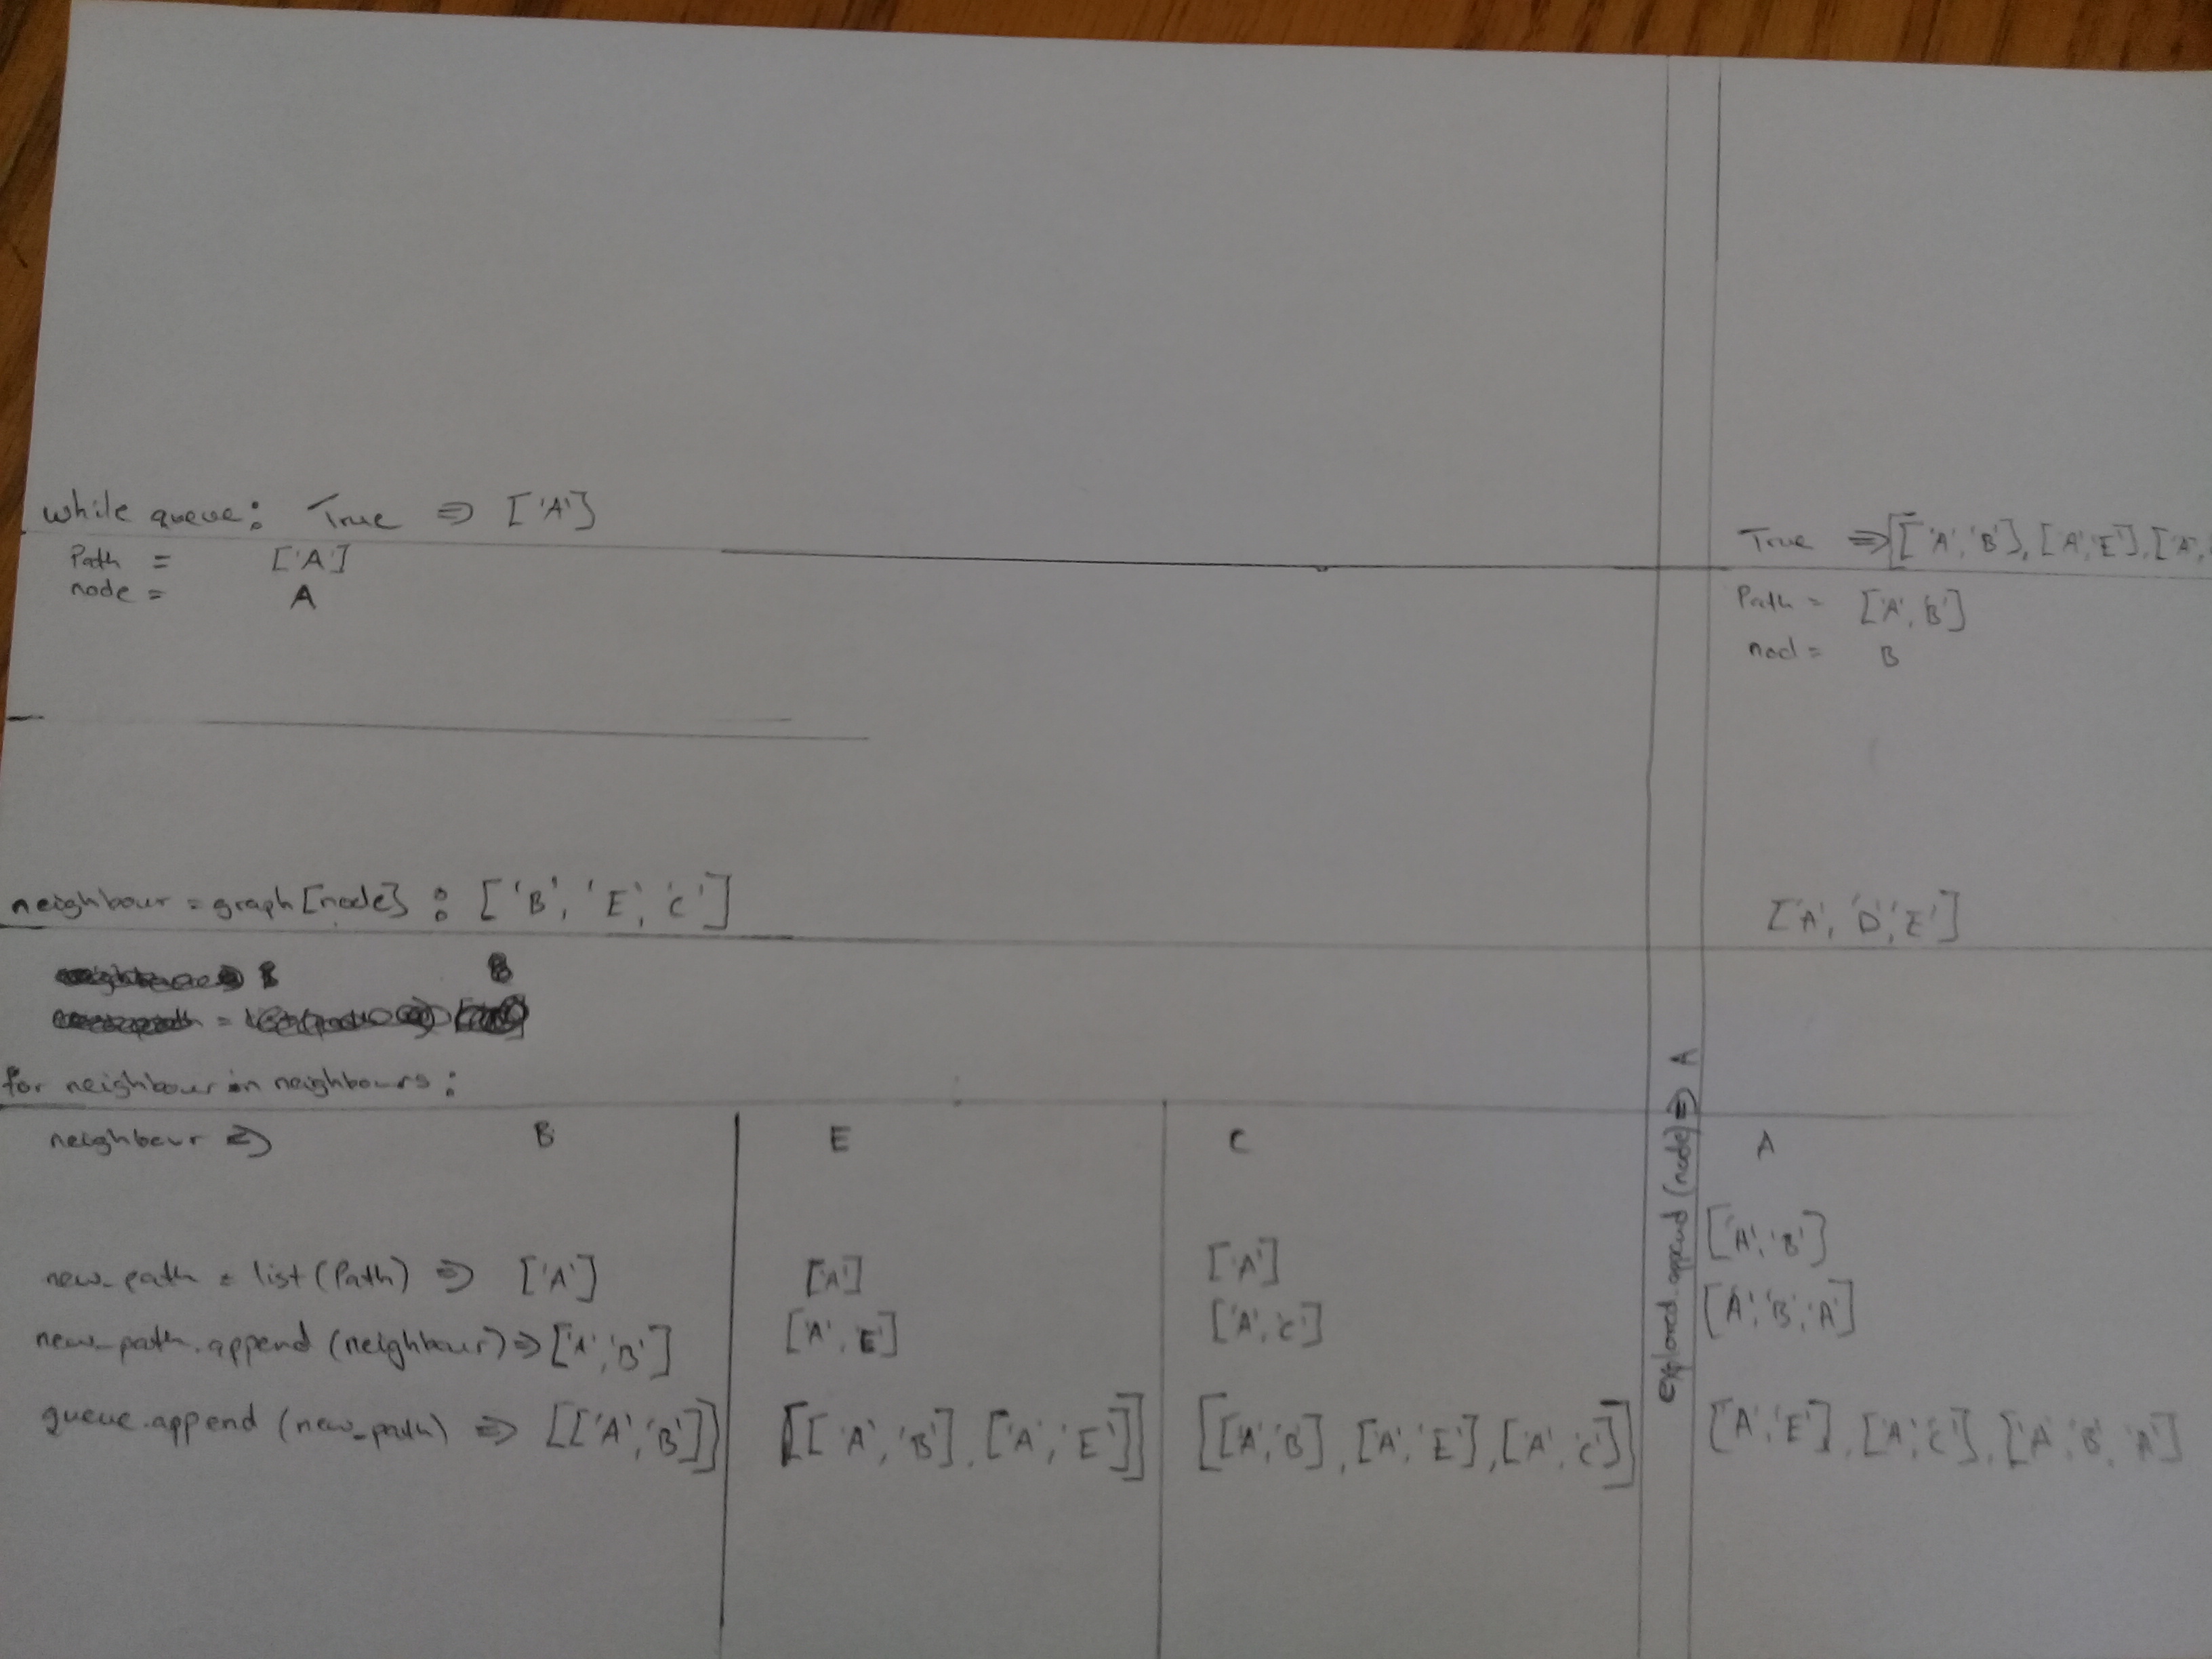 while queue: True ⇒ ['A']
Path = ['A']
node = A
neighbour = graph[node] : ['B', 'E', 'C']
B B
for neighbour in neighbours:
neighbour ⇒ B E C
new_path = list(Path) ⇒ ['A'] ['A'] ['A']
new_path.append(neighbour) ⇒ ['A', 'B'] ['A', 'E'] ['A', 'C']
queue.append(new_path) ⇒ [['A', 'B']] [['A', 'B'], ['A', 'E']] [['A', 'B'], ['A', 'E'], ['A', 'C']]
explored.append(node) ⇒ A
True ⇒ [['A', 'B'], ['A', 'E'], ['A',
Path = ['A', 'B']
nod = B
['A', 'D', 'E']
A
['A', 'B']
['A', 'B', 'A']
['A', 'E'], ['A', 'C'], ['A', 'B', 'A']